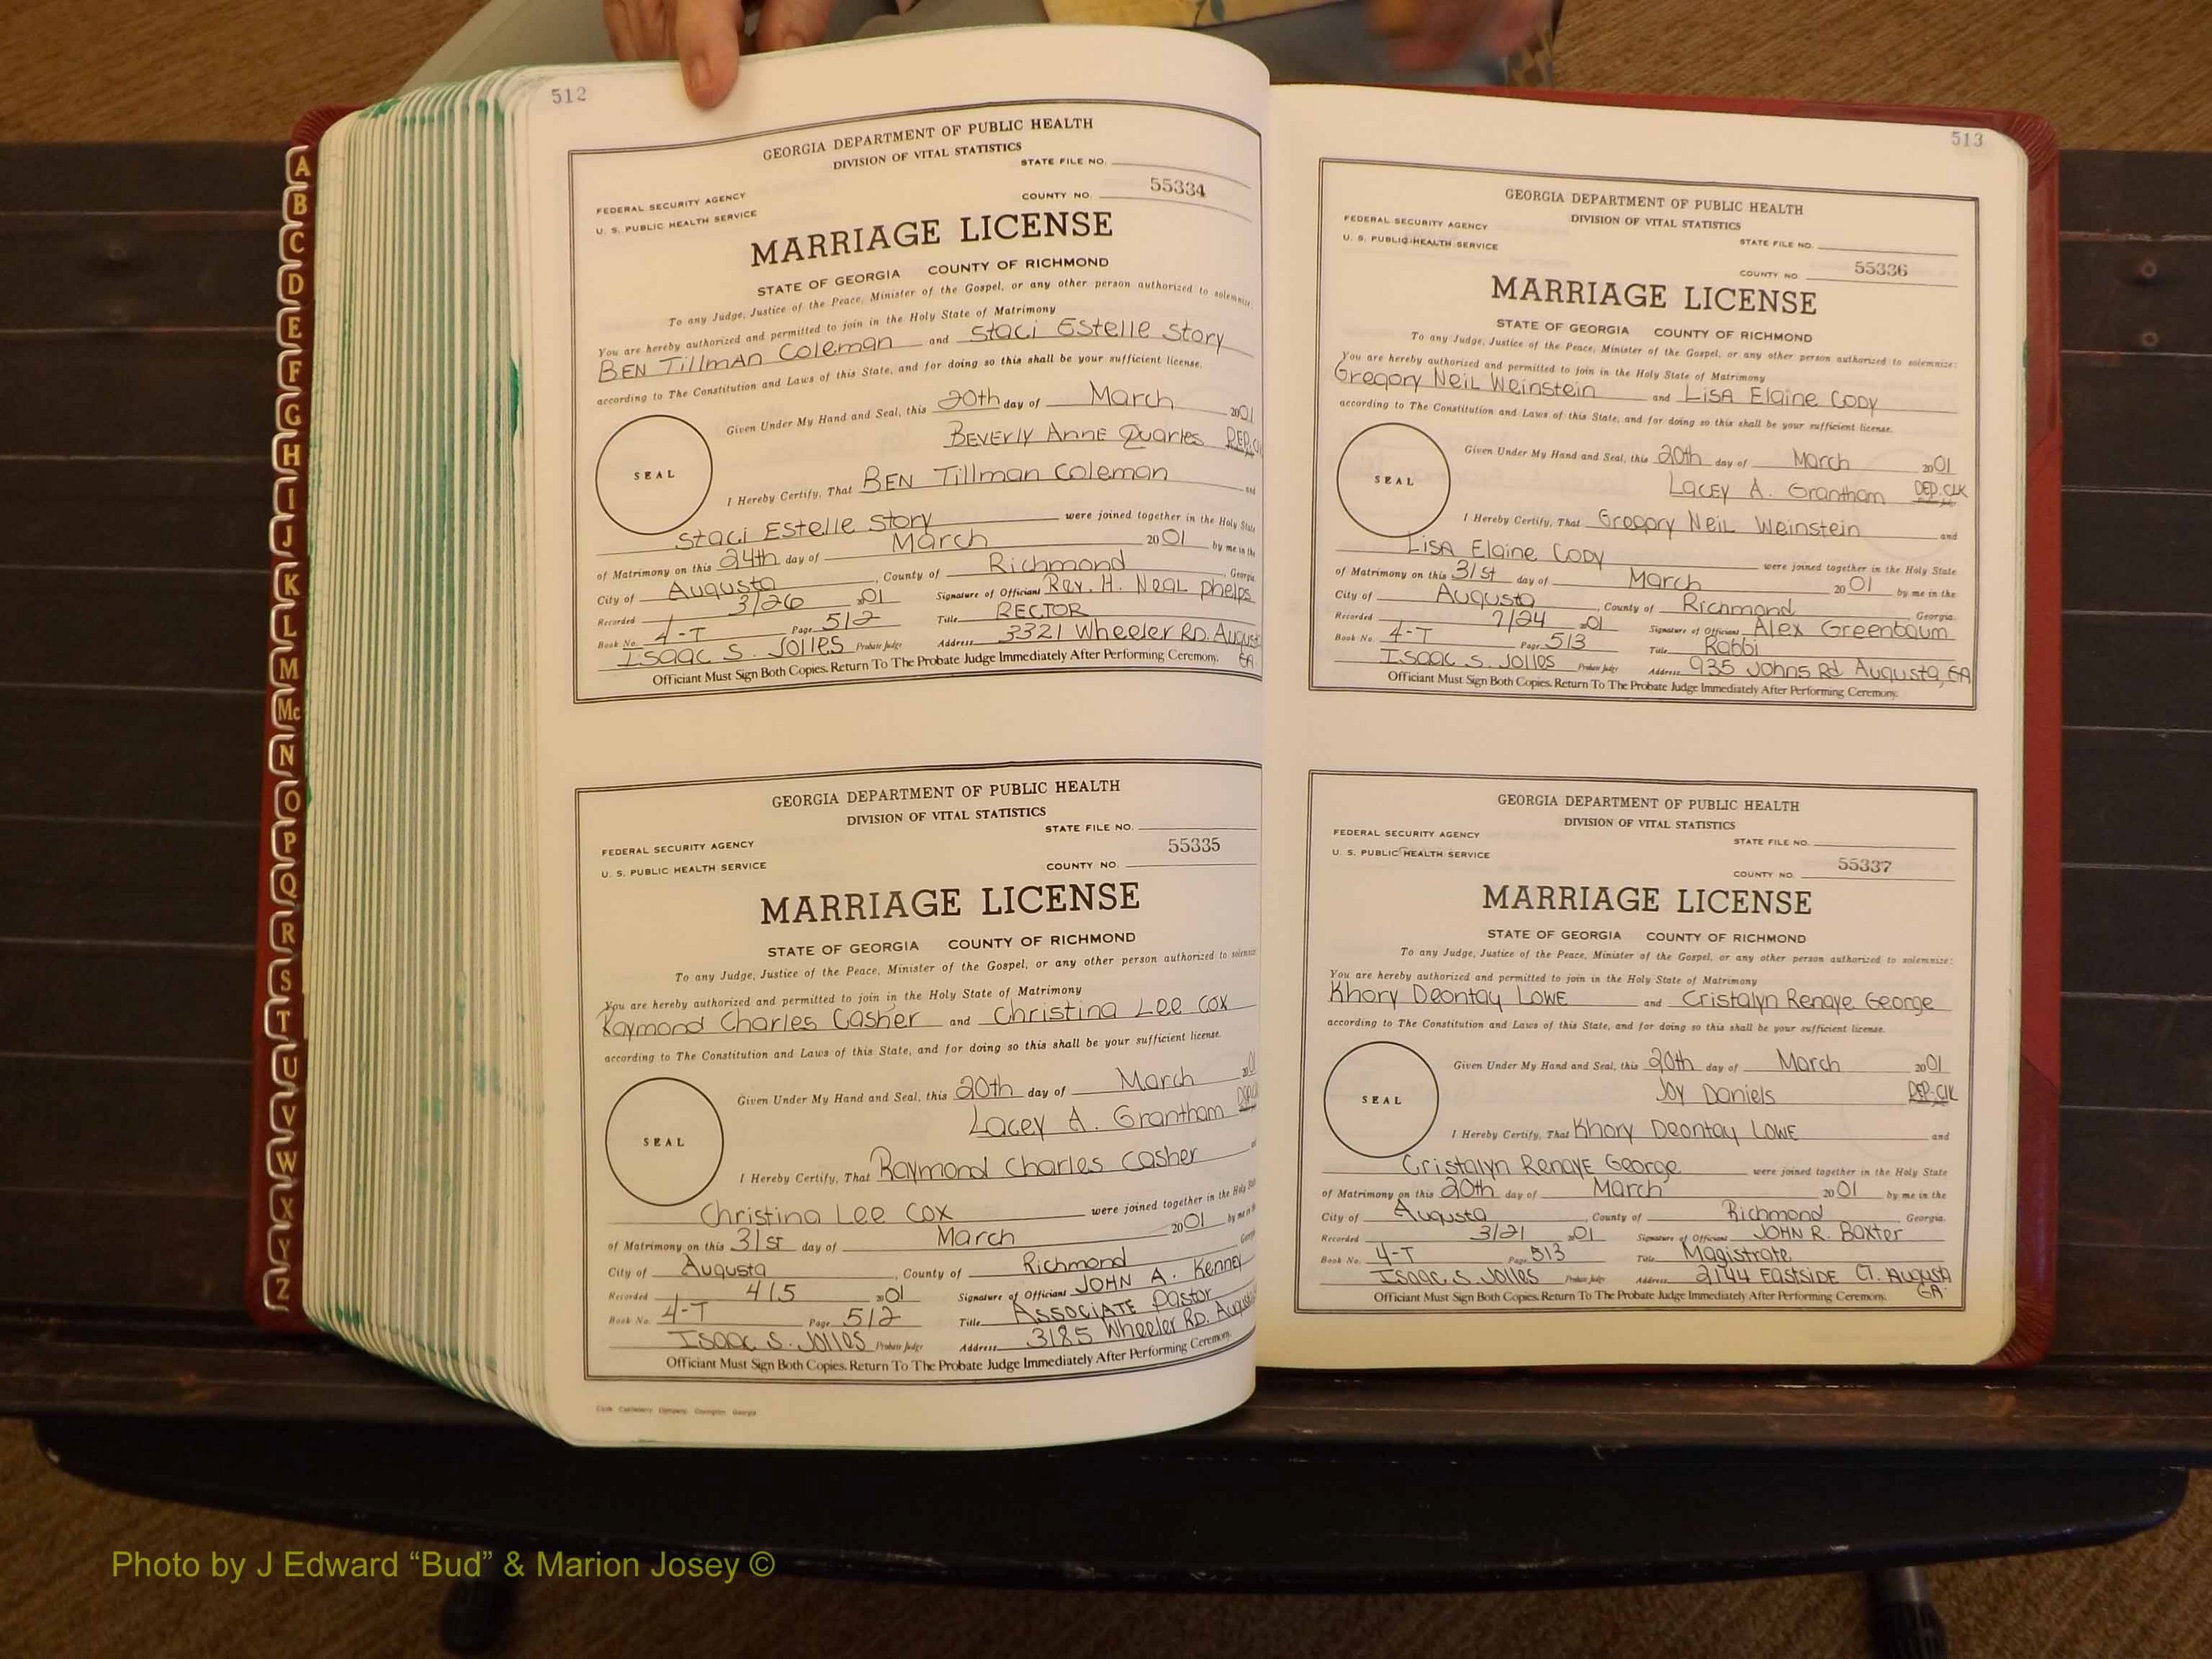 512
GEORGIA DEPARTMENT OF PUBLIC HEALTH
DIVISION OF VITAL STATISTICS
STATE FILE NO.
FEDERAL SECURITY AGENCY
COUNTY NO. 55334
U. S. PUBLIC HEALTH SERVICE
MARRIAGE LICENSE
STATE OF GEORGIA COUNTY OF RICHMOND
To any Judge, Justice of the Peace, Minister of the Gospel, or any other person authorized to solemnize:
You are hereby authorized and permitted to join in the Holy State of Matrimony
BEN TillmAn Coleman and Staci Estelle Story
according to The Constitution and Laws of this State, and for doing so this shall be your sufficient license.
Given Under My Hand and Seal, this 20th day of March 2001
BEVERLY ANNE Quarles DEP.
SEAL
I Hereby Certify, That BEN Tillman Coleman and
Staci Estelle Story were joined together in the Holy State
of Matrimony on this 24th day of March 2001 by me in the
City of Augusta, County of Richmond, Georgia.
Recorded 3/26 2001 Signature of Officiant Rev. H. Neal Phelps
Book No. 4-T Page 512 Title RECTOR
Isaac S. Jolles Probate Judge Address 3321 Wheeler RD. August GA.
Officiant Must Sign Both Copies. Return To The Probate Judge Immediately After Performing Ceremony.
GEORGIA DEPARTMENT OF PUBLIC HEALTH
DIVISION OF VITAL STATISTICS
STATE FILE NO.
FEDERAL SECURITY AGENCY
55335
U. S. PUBLIC HEALTH SERVICE
COUNTY NO.
MARRIAGE LICENSE
STATE OF GEORGIA COUNTY OF RICHMOND
To any Judge, Justice of the Peace, Minister of the Gospel, or any other person authorized to solemnize
You are hereby authorized and permitted to join in the Holy State of Matrimony
Raymond Charles Casher and Christina Lee Cox
according to The Constitution and Laws of this State, and for doing so this shall be your sufficient license.
Given Under My Hand and Seal, this 20th day of March 2001
Lacey A. Grantham
SEAL
I Hereby Certify, That Raymond Charles Casher
Christina Lee Cox were joined together in the Holy State
of Matrimony on this 31st day of March 2001 by me in
City of Augusta, County of Richmond
Recorded 4/5 2001 Signature of Officiant JOHN A. Kenney
Book No. 4-T Page 512 Title Associate Pastor
Isaac S. Jolles Probate Judge Address 3185 Wheeler RD. Augusta
Officiant Must Sign Both Copies. Return To The Probate Judge Immediately After Performing Ceremony.
513
GEORGIA DEPARTMENT OF PUBLIC HEALTH
DIVISION OF VITAL STATISTICS
FEDERAL SECURITY AGENCY
STATE FILE NO.
U. S. PUBLIC HEALTH SERVICE
COUNTY NO 55336
MARRIAGE LICENSE
STATE OF GEORGIA COUNTY OF RICHMOND
To any Judge, Justice of the Peace, Minister of the Gospel, or any other person authorized to solemnize:
You are hereby authorized and permitted to join in the Holy State of Matrimony
Gregory Neil Weinstein and Lisa Elaine Cody
according to The Constitution and Laws of this State, and for doing so this shall be your sufficient license.
Given Under My Hand and Seal, this 20th day of March 2001
Lacey A. Grantham DEP. CLK
SEAL
I Hereby Certify, That Gregory Neil Weinstein and
Lisa Elaine Cody were joined together in the Holy State
of Matrimony on this 31st day of March 2001 by me in the
City of Augusta, County of Richmond Georgia.
Recorded 7/24 2001 Signature of Officiant Alex Greenbaum
Book No. 4-T Page 513 Title Rabbi
Isaac S. Jolles Probate Judge Address 935 Johns Rd Augusta, GA
Officiant Must Sign Both Copies. Return To The Probate Judge Immediately After Performing Ceremony.
GEORGIA DEPARTMENT OF PUBLIC HEALTH
DIVISION OF VITAL STATISTICS
FEDERAL SECURITY AGENCY
STATE FILE NO.
U. S. PUBLIC HEALTH SERVICE
COUNTY NO. 55337
MARRIAGE LICENSE
STATE OF GEORGIA COUNTY OF RICHMOND
To any Judge, Justice of the Peace, Minister of the Gospel, or any other person authorized to solemnize:
You are hereby authorized and permitted to join in the Holy State of Matrimony
Khory Deontay LOWE and Cristalyn Renaye George
according to The Constitution and Laws of this State, and for doing so this shall be your sufficient license.
Given Under My Hand and Seal, this 20th day of March 2001
Joy Daniels DEP. CLK
SEAL
I Hereby Certify, That Khory Deontay LOWE and
Cristalyn RenayE George were joined together in the Holy State
of Matrimony on this 20th day of March 2001 by me in the
City of Augusta, County of Richmond Georgia.
Recorded 3/21 2001 Signature of Officiant JOHN R. Baxter
Book No. 4-T Page 513 Title Magistrate
Isaac S. Jolles Probate Judge Address 2144 EASTSIDE CT. Augusta GA.
Officiant Must Sign Both Copies. Return To The Probate Judge Immediately After Performing Ceremony.
A
B
C
D
E
F
G
H
I
J
K
L
M
Mc
N
O
P
Q
R
S
T
U
V
W
X
Y
Z
Photo by J Edward “Bud” & Marion Josey ©